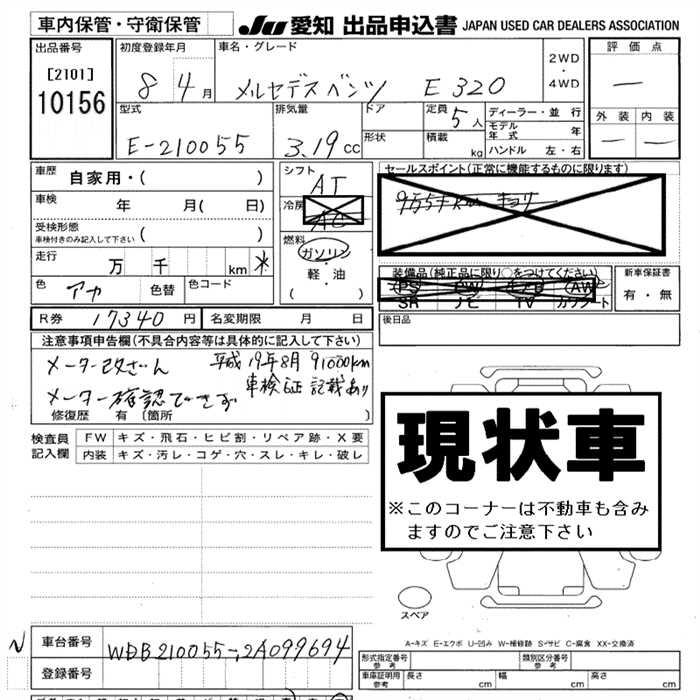 車内保管・守衛保管
JU 愛知 出品申込書 JAPAN USED CAR DEALERS ASSOCIATION
出品番号
[2101]
10156
初度登録年月
8 4月
車名・グレード
メルセデスベンツ E320
2WD
・
4WD
評価点
—
外装 内装
— —
型式
E-210055
排気量
3.19cc
ドア
形状
定員 5人
積載 kg
ディーラー・並行
モデル年式 年
ハンドル 左・右
車歴 自家用・( )
車検 年 月( 日)
受検形態
車検付きのみ記入して下さい ( )
走行 万 千 km *
色 アカ 色替 色コード
シフト
AT
冷房
AC
燃料
ガソリン
・
軽・油
( )
セールスポイント(正常に機能するものに限ります)
9万5千km
装備品(純正品に限り○をつけてください)
PS PW エアB AW
SR ナビ TV カワシート
新車保証書
有・無
R券 17340円 名変期限 月 日
後日品
注意事項申告欄(不具合内容等は具体的に記入して下さい)
メーター改ざん 平成19年8月 91000km
車検証記載あり
メーター確認できず
修復歴 有〔箇所 〕
検査員
記入欄
FW キズ・飛石・ヒビ割・リペア跡・X要
内装 キズ・汚レ・コゲ・穴・スレ・キレ・破レ
現状車
※このコーナーは不動車も含み
ますのでご注意下さい
スペア
A-キズ E-エクボ U-凹み W-補修跡 S-サビ C-腐食 XX-交換済
車台番号 WDB210055-2A099694
登録番号
形式指定番号
参考
類別区分番号
参考
車庫証明用
参考
長さ cm 幅 cm 高さ cm